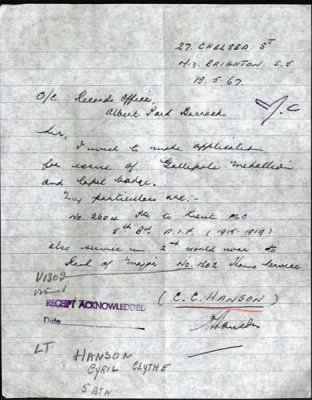 27. CHELSEA ST
Nth BRIGHTON S.5
13.5.67.
O/C Records Office,
Albert Park Barracks
Sir,
I wish to make application
for issue of Gallipoli Medallion
and Lapel badge.
My particulars are:-
No. 2604 Pte to Lieut M.C
5th Bn A.I.F. (1915-1919)
also service in 2nd world war to
Rank of Major No.
(C. C. HANSON)
V1302
RECEIPT ACKNOWLEDGED
Date
LT HANSON
CYRIL CLYTHE
5 BTN